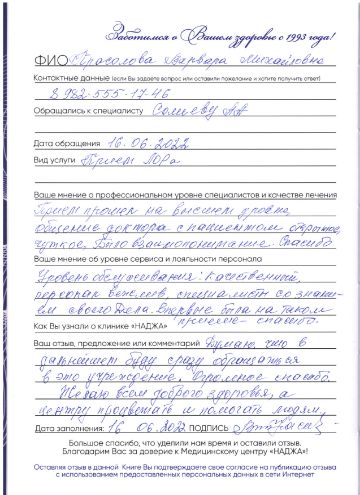 Заботимся о Вашем здоровье с 1993 года!
ФИО Прасолова Варвара Михайловна
Контактные данные (если Вы задаёте вопрос или оставили пожелание и хотите получить ответ)
8 982-555-17-46
Обращались к специалисту Солиеву АА
Дата обращения 16.06.2022
Вид услуги Прием ЛОРа
Ваше мнение о профессиональном уровне специалистов и качестве лечения
Прием прошел на высшем уровне,
общение доктора с пациентом открытое,
чуткое. Было взаимопонимание. Спасибо
Ваше мнение об уровне сервиса и лояльности персонала
Уровень обслуживания: качественный,
персонал вежлив, специалисты со знани-
ем своего дела. Впервые была на таком
приеме - спасибо.
Как Вы узнали о клинике «НАДЖА»
Ваш отзыв, предложение или комментарий Думаю, что в
дальнейшем буду сразу обращаться
в это учреждение. Огромное спасибо.
Желаю всем доброго здоровья, а
центру процветать и помогать людям.
Дата заполнения: 16.06.2022 ПОДПИСЬ
Большое спасибо, что уделили нам время и оставили отзыв.
Благодарим Вас за доверие к Медицинскому центру «НАДЖА»!
Оставляя отзыв в данной Книге Вы подтверждаете свое согласие на публикацию отзыва
с использованием предоставленных персональных данных в сети Интернет